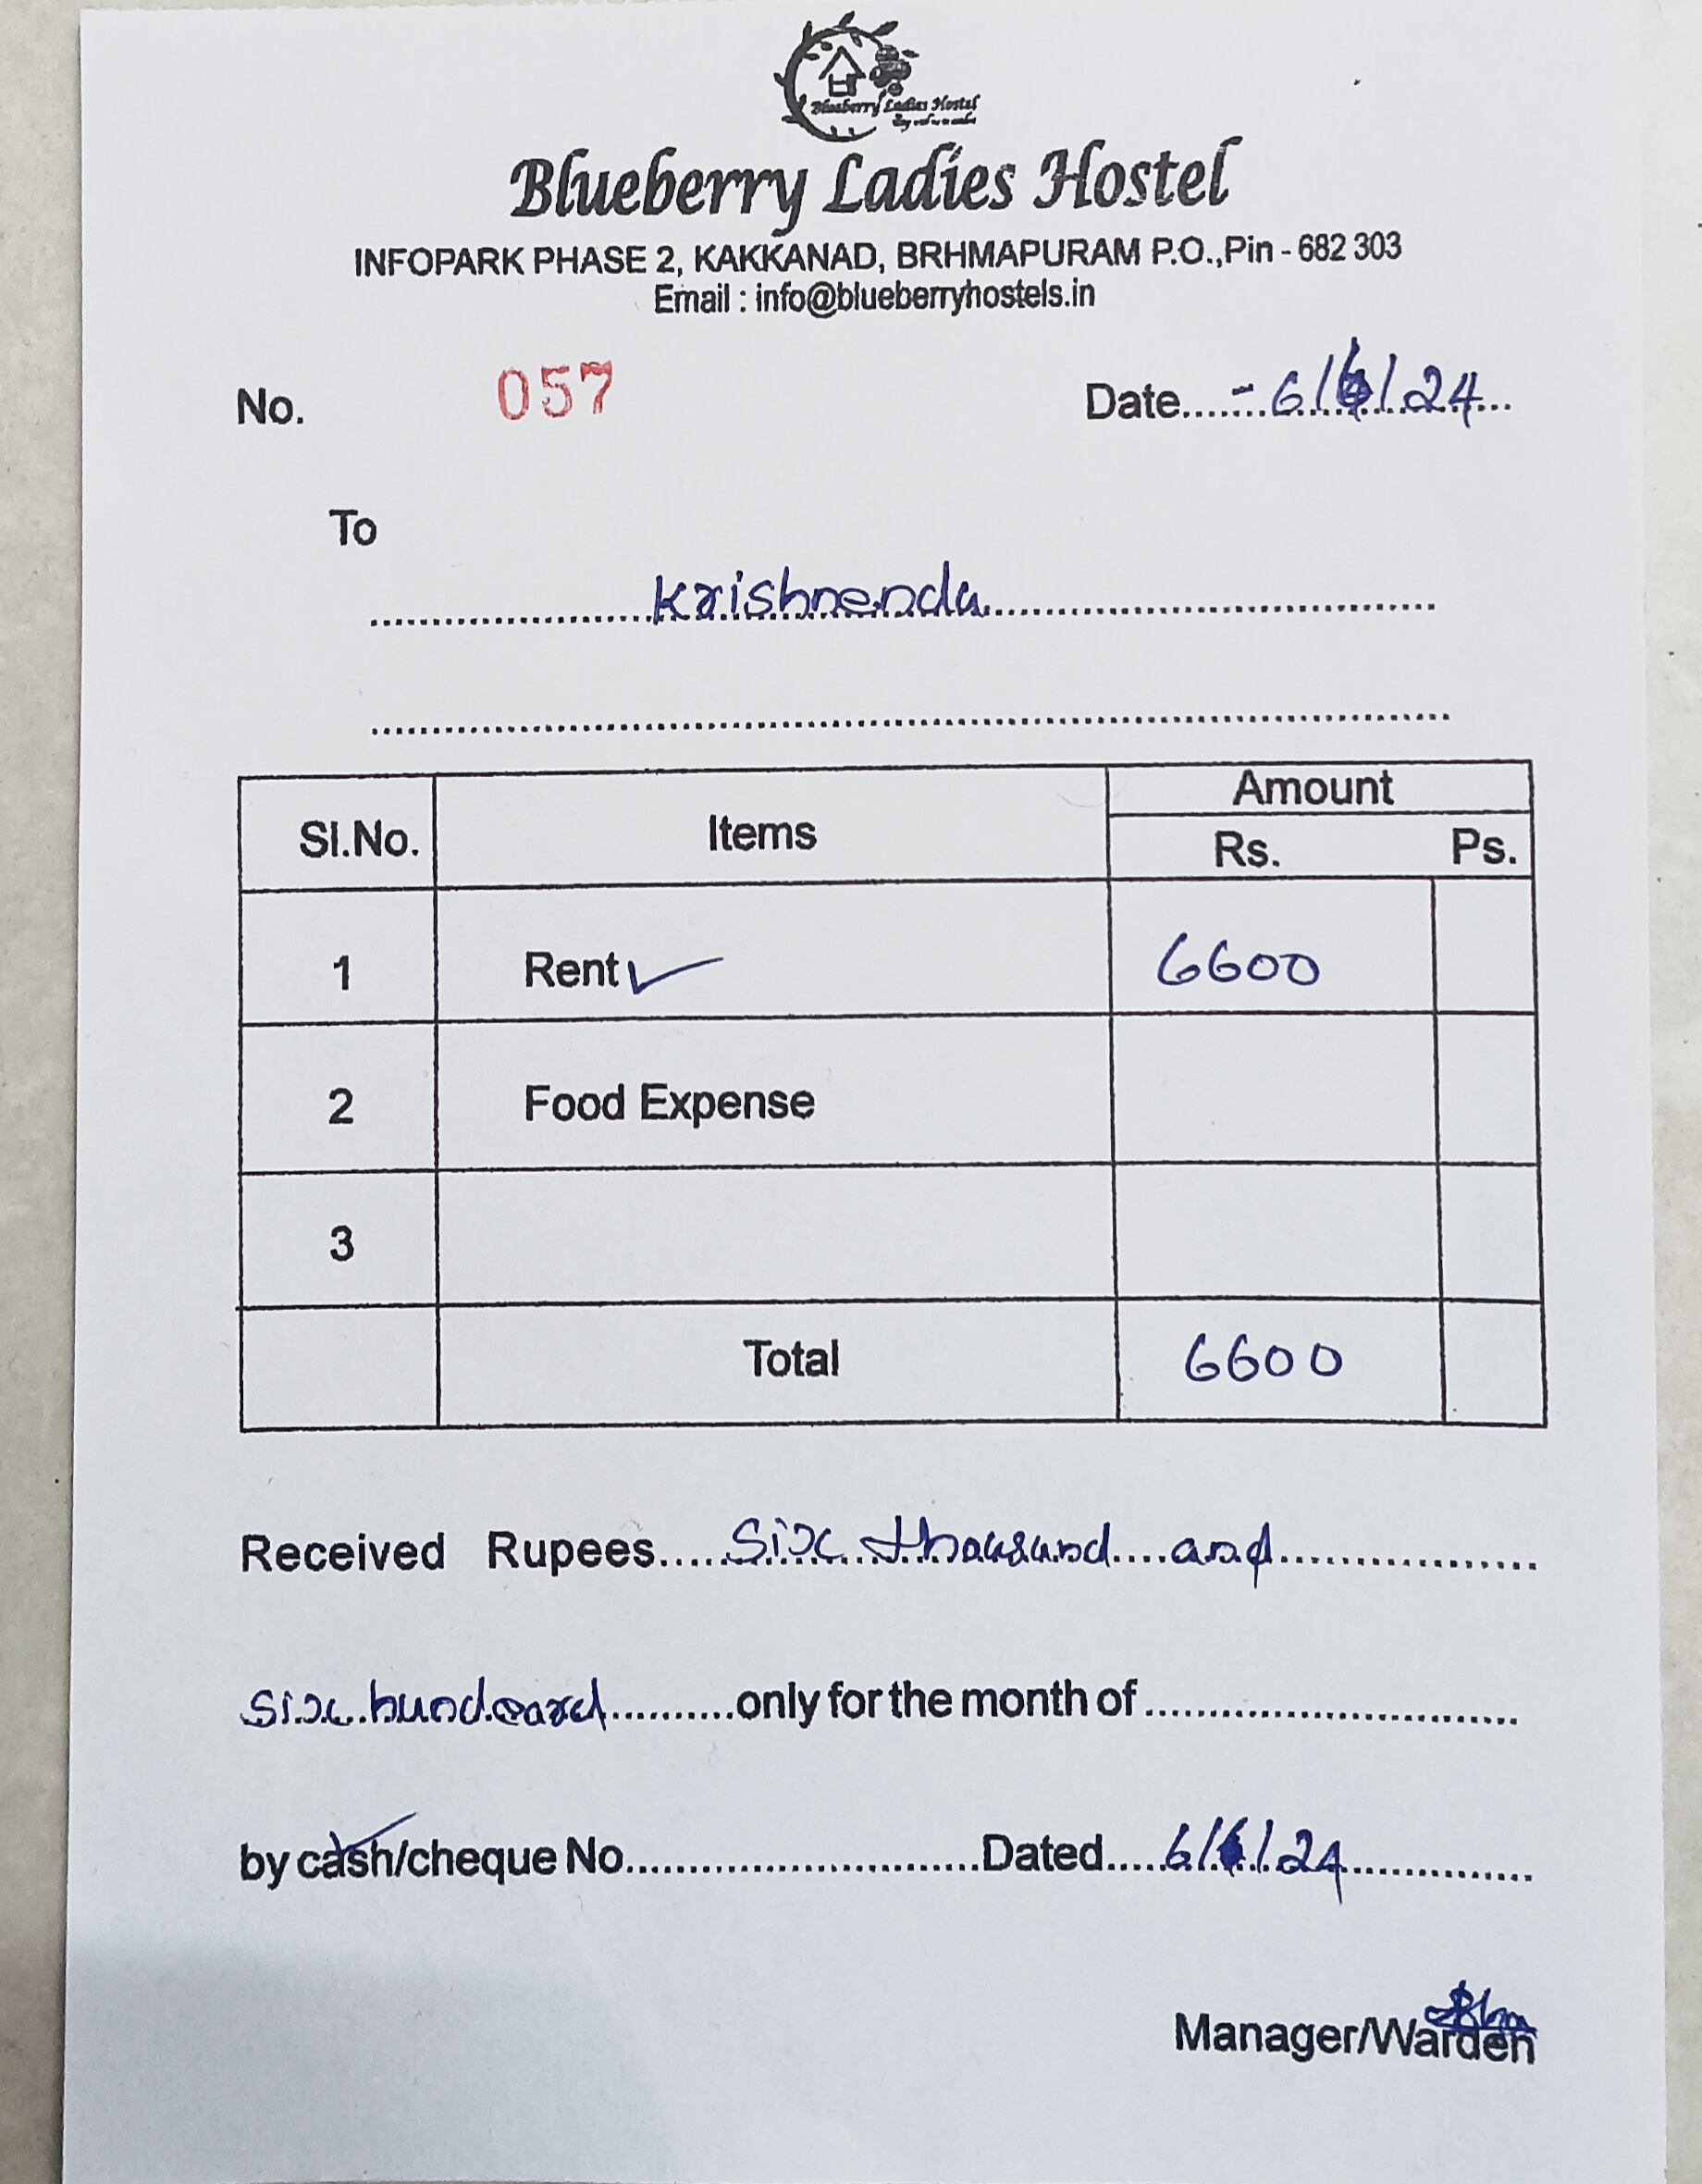 Blueberry Ladies Hostel
Blueberry Ladies Hostel
INFOPARK PHASE 2, KAKKANAD, BRHMAPURAM P.O.,Pin - 682 303
Email : info@blueberryhostels.in
No. 057 Date.......- 6/6/24...
To
Krishnenda
Sl.No. Items Amount
Rs. Ps.
1 Rent ✓ 6600
2 Food Expense
3
Total 6600
Received Rupees.....Six thousand and
six hundeard..........only for the month of
by cash/cheque No............................Dated.....6/6/24
Manager/Warden